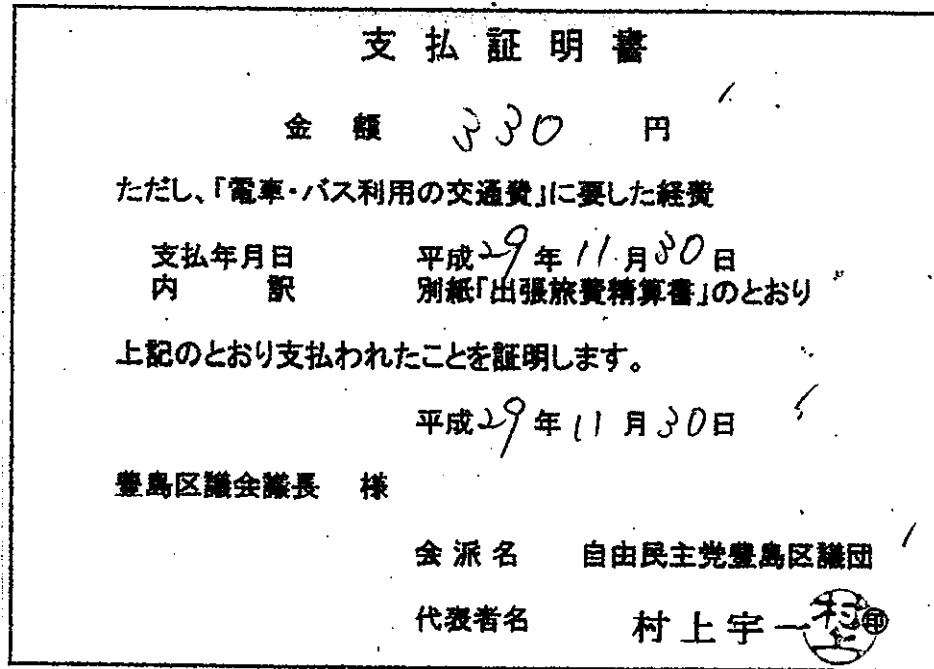 支払証明書
金額 330 円
ただし、「電車・バス利用の交通費」に要した経費
支払年月日 平成29年11月30日
内訳 別紙「出張旅費精算書」のとおり
上記のとおり支払われたことを証明します。
平成29年11月30日
豊島区議会議長 様
会派名 自由民主党豊島区議団
代表者名 村上宇一 村上 印